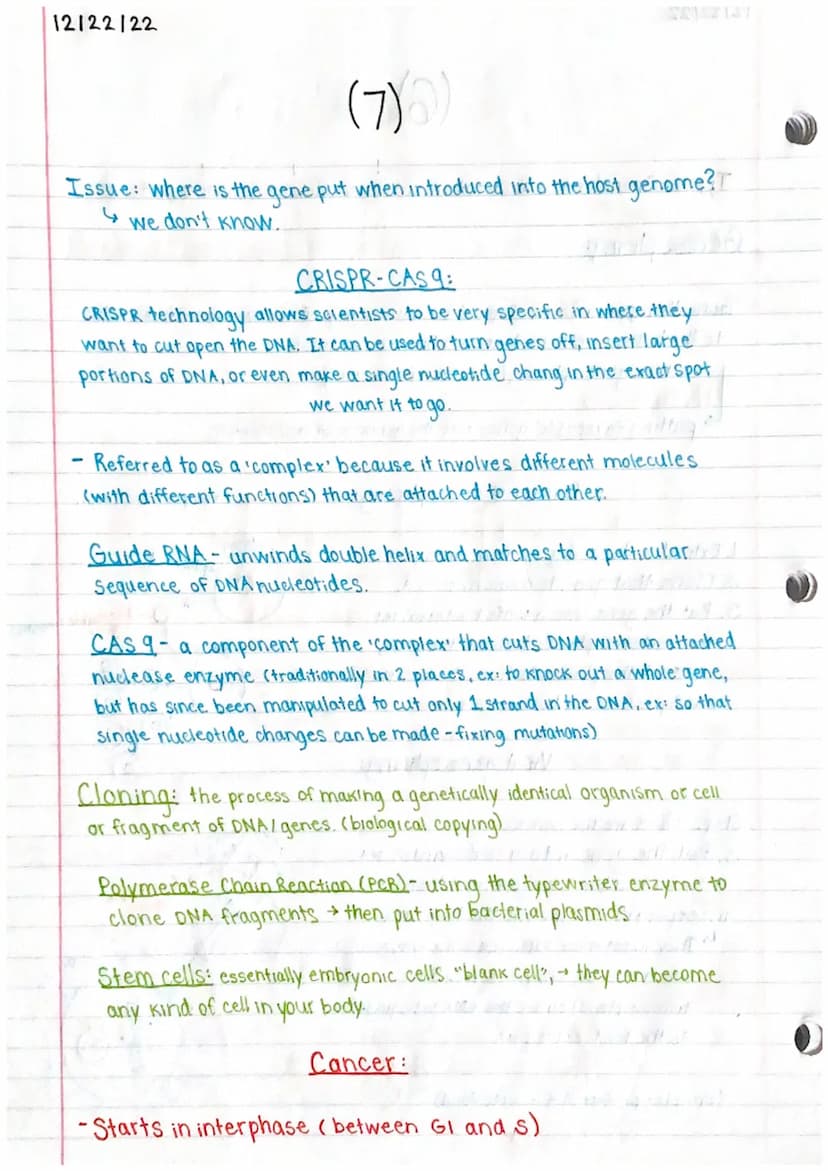 12/22/22
(7)
Issue: where is the gene put when introduced into the host genome?
↳ we don't know.
CRISPR-CAS9:
CRISPR technology allows scientists to be very specific in where they
want to cut open the DNA. It can be used to turn genes off, insert large
portions of DNA, or even make a single nucleotide chang in the exact spot
we want it to go.
- Referred to as a 'complex' because it involves different molecules
(with different functions) that are attached to each other.
Guide RNA - unwinds double helix and matches to a particular
sequence of DNA nucleotides.
CAS 9 - a component of the 'complex' that cuts DNA with an attached
nuclease enzyme (traditionally in 2 places, ex: to knock out a whole gene,
but has since been manipulated to cut only 1 strand in the DNA, ex: so that
single nucleotide changes can be made - fixing mutations)
Cloning: the process of making a genetically identical organism or cell
or fragment of DNA/genes. (biological copying)
Polymerase Chain Reaction (PCR) - using the typewriter enzyme to
clone DNA fragments → then put into bacterial plasmids
Stem cells: essentially embryonic cells "blank cell", → they can become
any kind of cell in your body.
Cancer:
- Starts in interphase (between G1 and S)